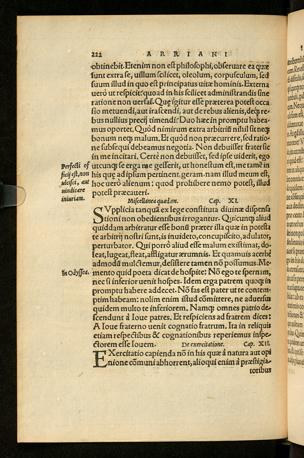 222 ARRIANI
obtinebit. Etenim non est philosophi, observare ea quæ
sunt extra se, uillum scilicet, oleolum, corpusculum, sed
suum illud in quo est principatus uitæ hominis. Externa
uerò ut respicit; quoad in his scilicet administrandis sine
ratione non uersat̃. Quę igitur esse præterea potest occa
sio metuendi, aut irascendi, aut de rebus alienis, deq́; re-
bus nullius precij timendi: Duo hæc in promptu habea-
mus oportet, Quòd nimirum extra arbitriũ nihil sit neq;
bonum neq; malum. Et quòd non præcurrere, sed ratio-
ne subsequi debeamus negotia. Non debuisset frater sic
in me incitari. Certè non debuisset, sed ipse uiderit, ego
utcunq; se erga me gesserit, ut honestum est, me tamẽ in
his quę ad ipsum pertinent. geram‑nam illud meum est,
hoc uerò alienum: quod prohibere nemo potest, illud
potest præcaueri.
Perfecti of
ficij est, non
ulcisci, aut
uindicare
iniuriam.
Miscellanea quædam. Cap. XI.
SVpplicia tanquã ex lege constituta diuinæ dispensa
tioni non obedientibus irrogantur. Quicunq; aliud
quiddam arbitratur esse bonũ præter illa quæ in potesta
te arbitrij nostri sunt, is inuideto, concupiscito, adulator,
perturbator. Qui porrò aliud esse malum existimat, do-
leat, lugeat, fleat, affligatur ærumnis. Et quamuis acerbè
admodũ mulctemur, desistere tamen nõ possumus. Me-
mento quid poeta dicat de hospite: Nõ ego te spernam,
nec si inferior uenit hospes. Idem erga patrem quoq; in
promptu habere addecet. Nõ fas est pater ut te contem-
ptim habeam: nolim enim illud cõmittere, ne aduersus
quidem multo te inferiorem. Namq; omnes patrio de-
scendunt à Ioue patres. Et respiciens ad fratrem dicet:
A Ioue fraterno uenit cognatio fratrum. Ita in reliquis
etiam respectibus & cognationibus reperiemus inspe-
ctorem esse Iouem.
In Odyssea.
De exercitatione. Cap. XII.
EXercitatio capienda nõ in his quæ à natura aut opi
nione cõmuni abhorrent, alioqui enim à præstigia-
toribus